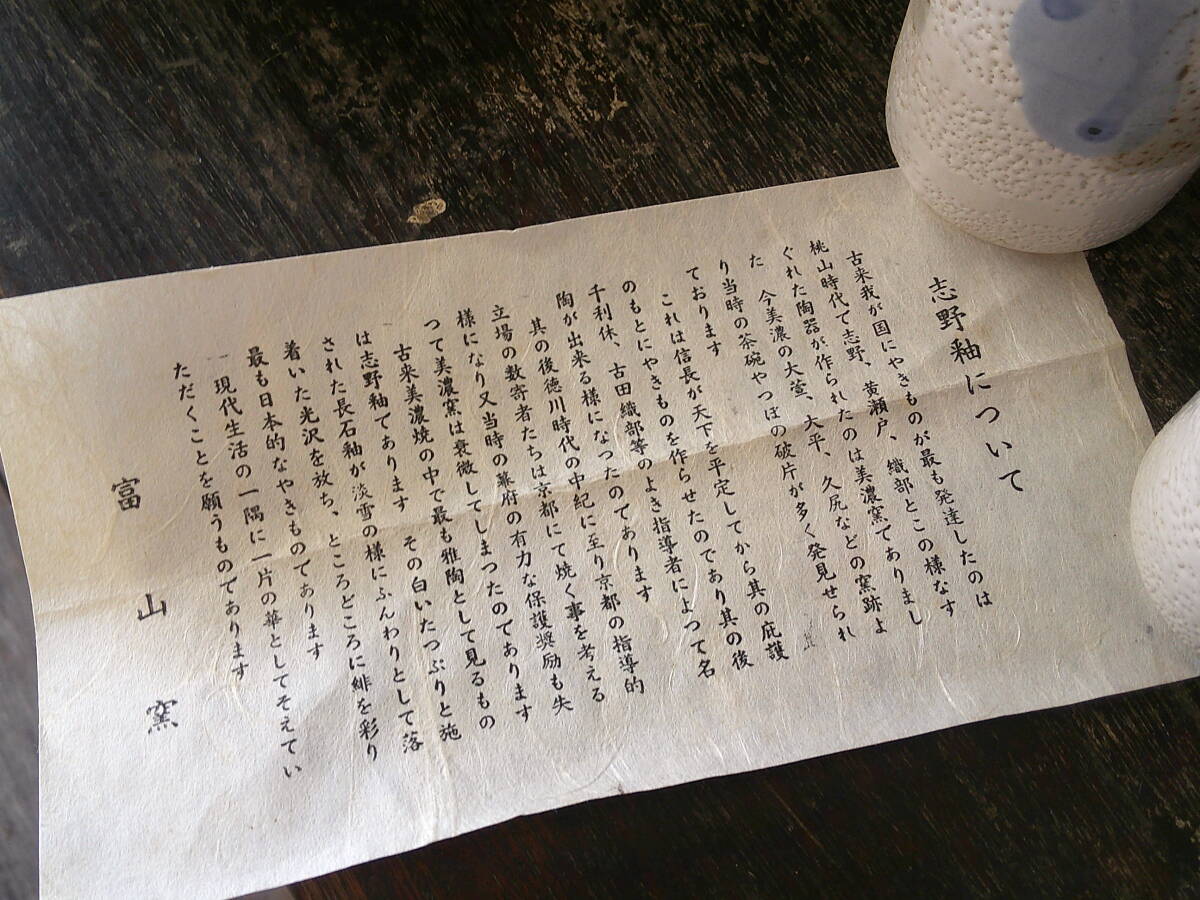 志野釉について
古来我が国にやきものが最も発達したのは
桃山時代で志野、黄瀬戸、織部とこの様なす
ぐれた陶器が作られたのは美濃窯でありまし
た　今美濃の大萱、大平、久尻などの窯跡よ
り当時の茶碗やつぼの破片が多く発見せられ
ております
これは信長が天下を平定してから其の庇護
のもとにやきものを作らせたのであり其の後
千利休、古田織部等のよき指導者によつて名
陶が出来る様になったのであります
其の後徳川時代の中紀に至り京都の指導的
立場の数寄者たちは京都にて焼く事を考える
様になり又当時の幕府の有力な保護奨励も失
つて美濃窯は衰微してしまつたのであります
古来美濃焼の中で最も雅陶として見るもの
は志野釉であります　その白いたつぷりと施
された長石釉が淡雪の様にふんわりとして落
着いた光沢を放ち、ところどころに緋を彩り
最も日本的なやきものであります
現代生活の一隅に一片の華としてそえてい
ただくことを願うものであります
富山窯